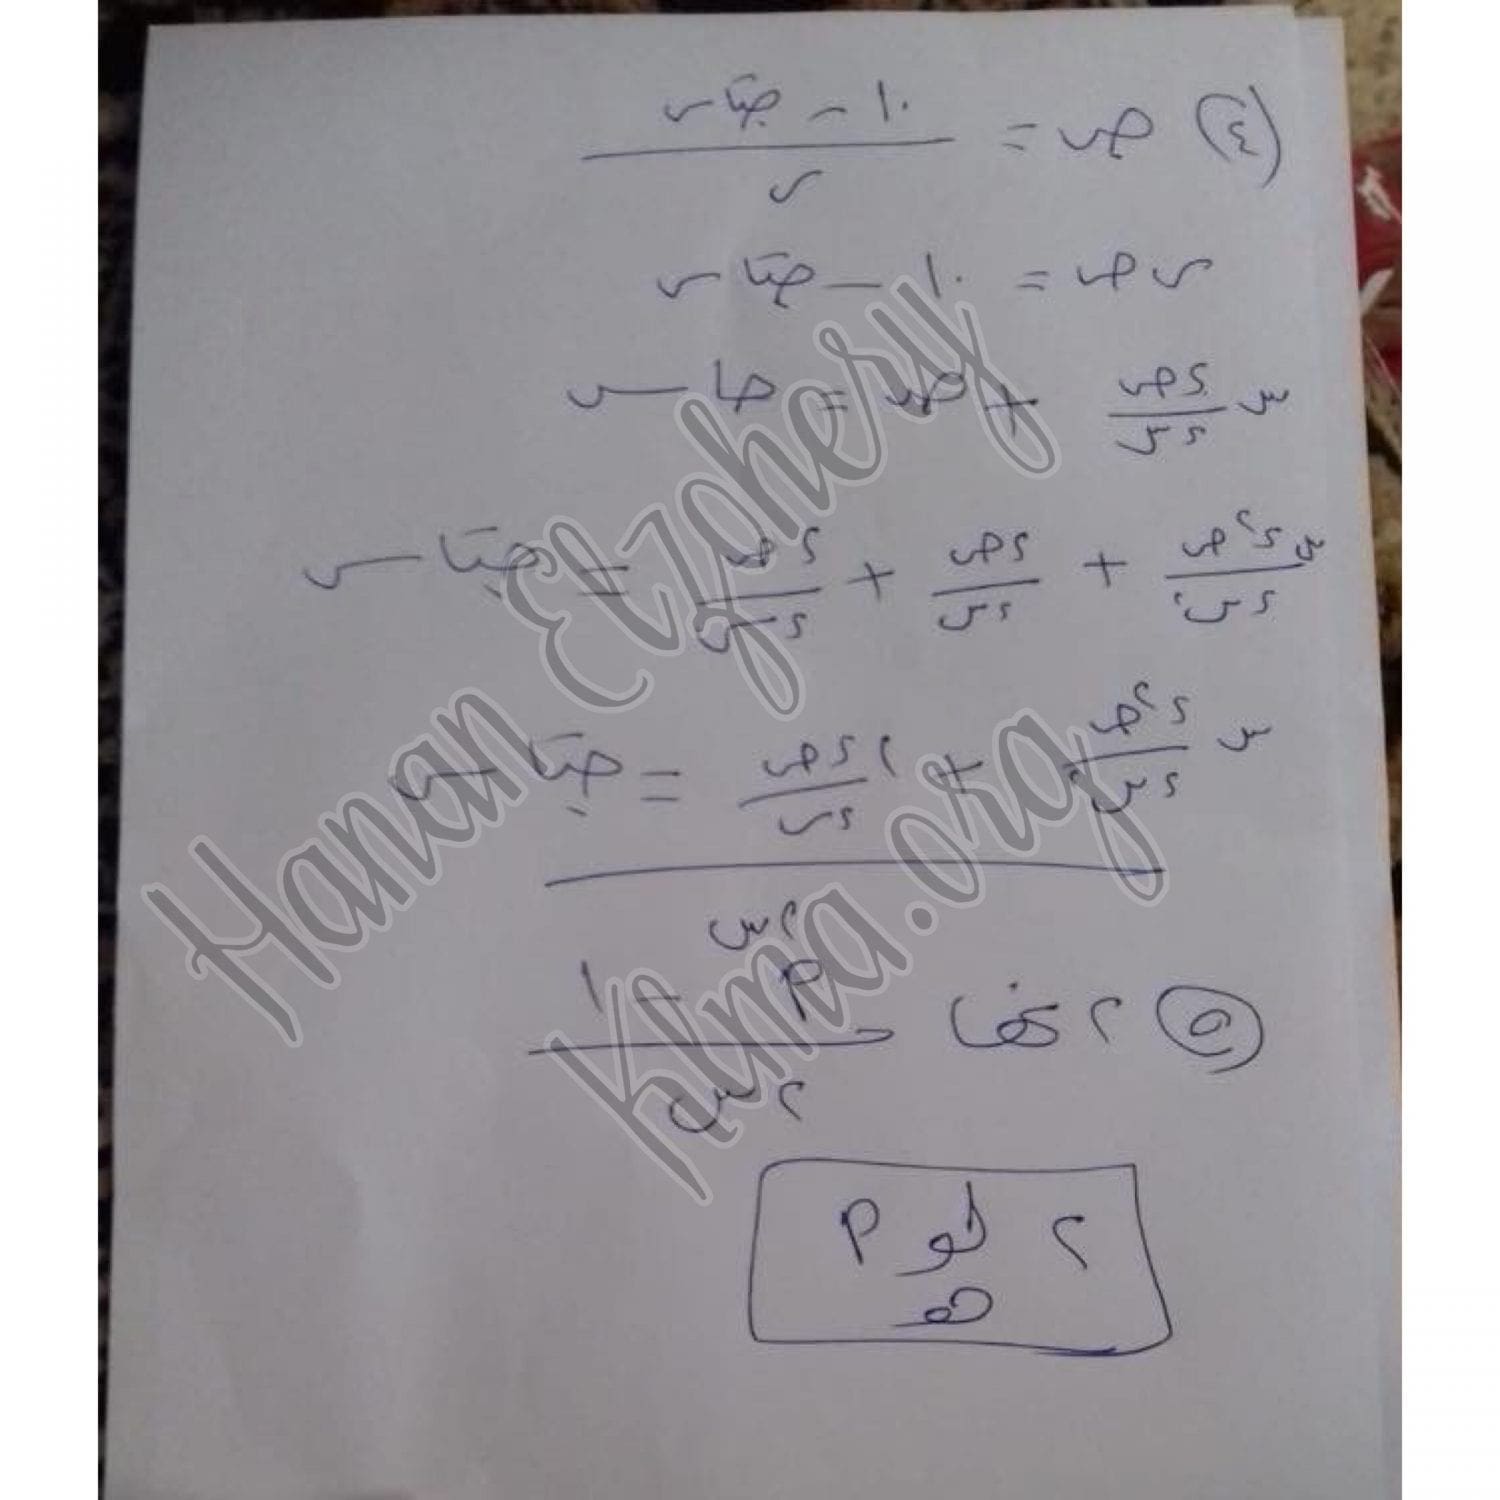 (٤) ص = (١٠ - جتاس) / س
س ص = ١٠ - جتاس
س ءص/ءس + ص = جاس
س ء٢ص/ءس٢ + ءص/ءس + ءص/ءس = جتاس
س ء٢ص/ءس٢ + ٢ءص/ءس = جتاس
(٥) ٢ نهـا (م^٢س - ١) / ٢س
٢ لو م
هـ
Hanan Elzohery
Klma.org